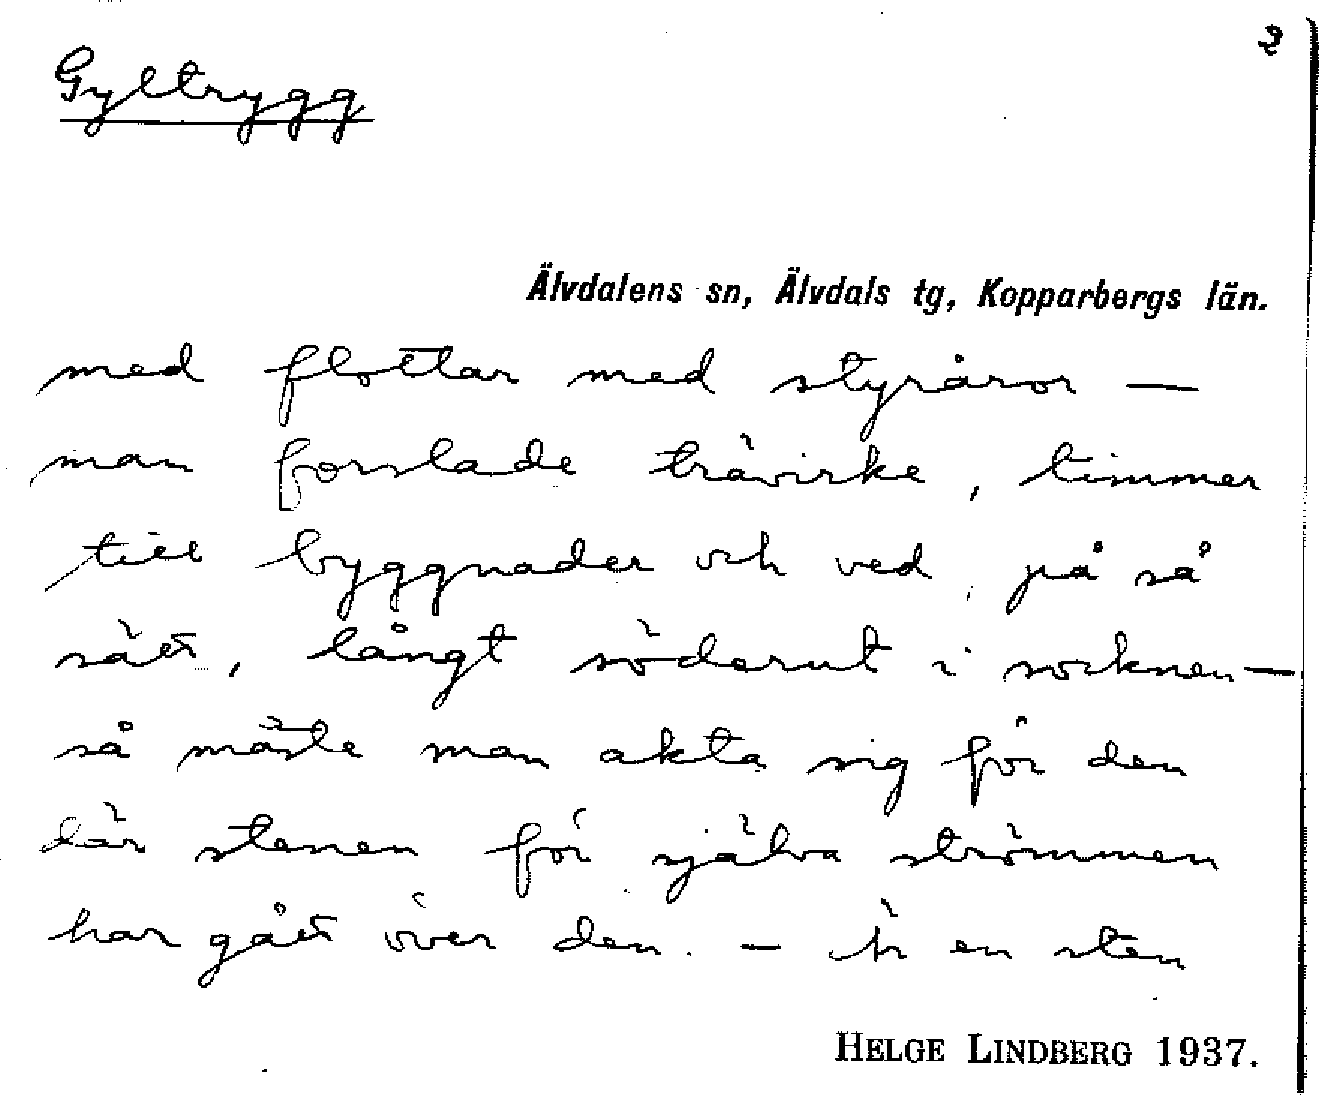 2
Gyltrygg
Älvdalens sn, Älvdals tg, Kopparbergs län.
med flottar med styråror —
man forslade trävirke, timmer
till byggnader och ved, på så
sätt, långt söderut i socknen —
så måste man akta sig för den
där stenen för själva strömmen
har gått över den. — Är en sten
HELGE LINDBERG 1937.